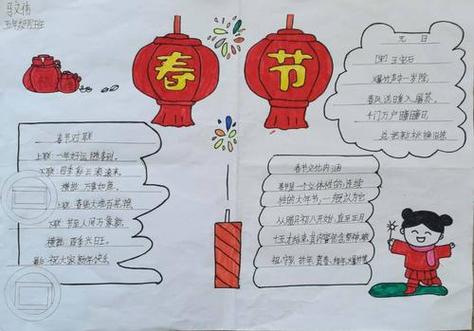 五年级 班
春节
春节对联
上联：一年好运随春到，
下联：四季彩云滚滚来
横批：万事如意。
上联：春临大地百花艳
下联：节至人间万象新。
横批：
祝大家新年快乐
元日
[宋]王安石
爆竹声中一岁除，
春风送暖入屠苏。
千门万户曈曈日
总把新桃换旧符
春节文化内涵
春节是一个立体性的、连续
性的大年节，一般认为它
从腊月初八开始，直至正月
十五才结束，其内容包含祭神、祭
祖、守岁、拜年、贺春、